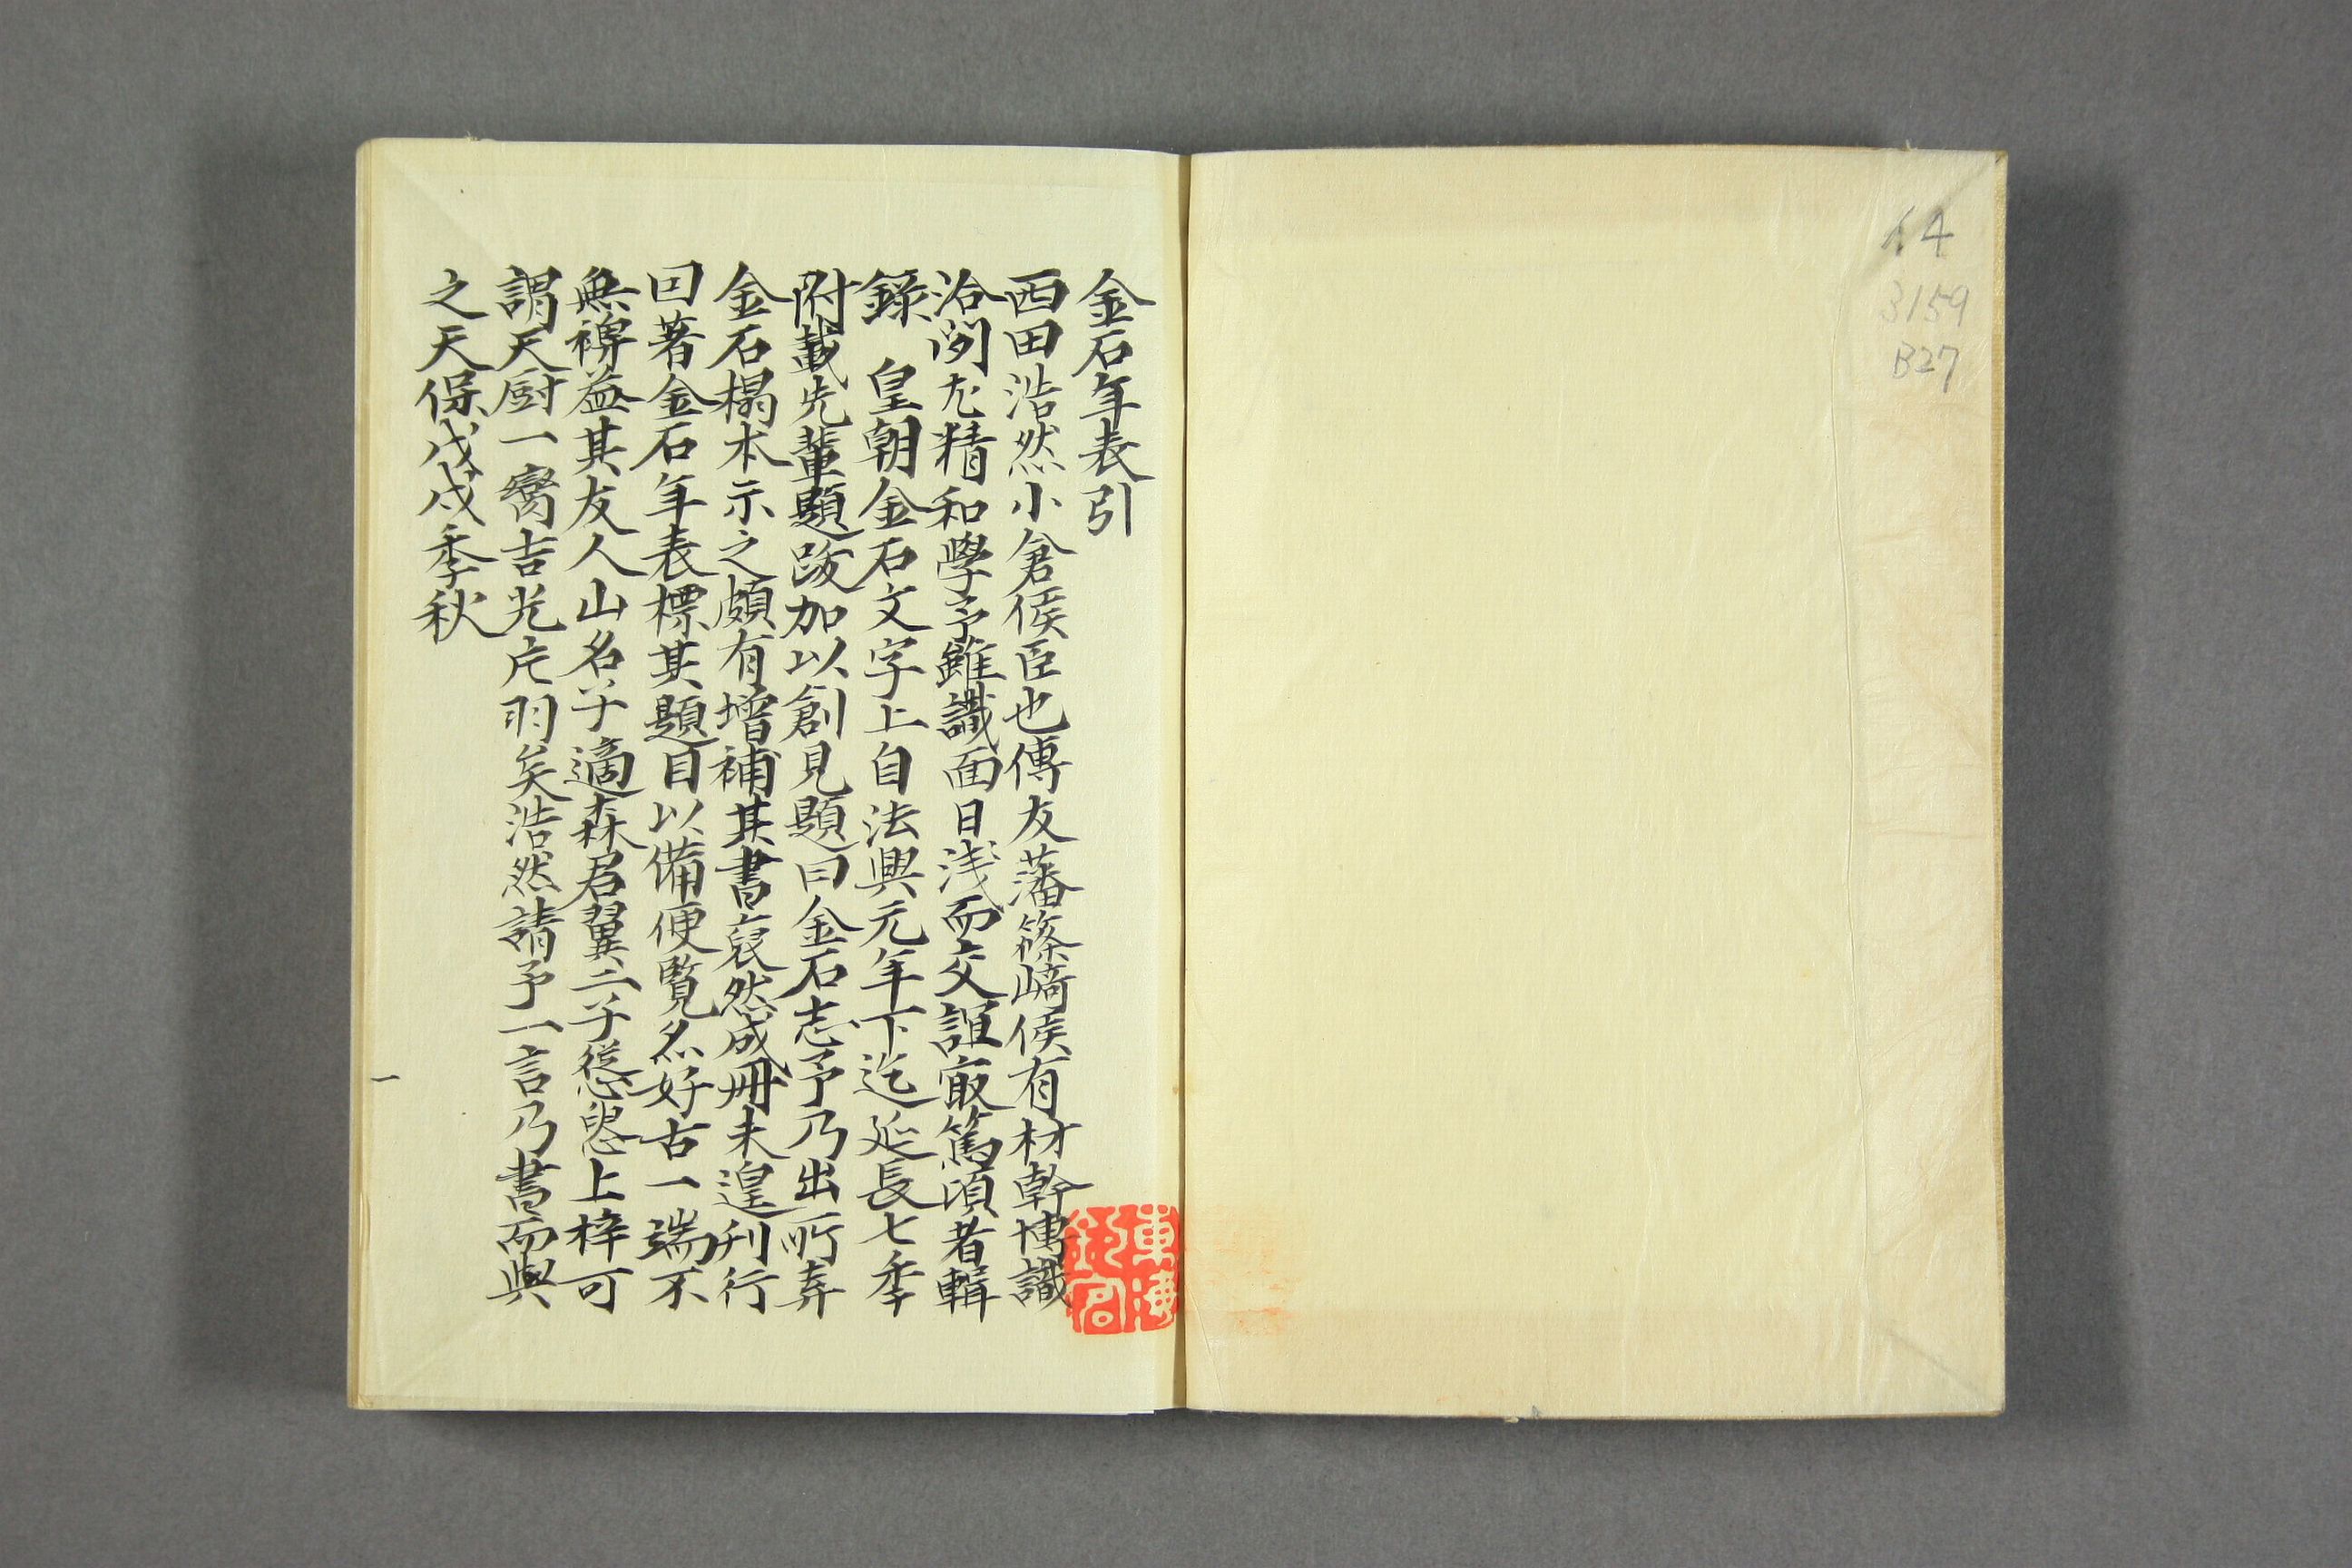 金石年表引
西田浩然小倉侯臣也傳友藩篠﨑侯有材幹博識
洽聞尤精和學予雖識面日浅而交誼㝡篤頃者輯
錄　皇朝金石文字上自法興元年下迄延長七季
附載先輩題跋加以創見題曰金石志予乃出所弆
金石榻本示之頗有增補其書裒然成冊未遑刊行
因著金石年表標其題目以備便覧然好古一端不
無裨益其友人山名子適森君翼二子慫慂上梓可
謂天厨一臠吉光片羽矣浩然請予一言乃書而與
之天保戊戌季秋
一
64
3159
B27